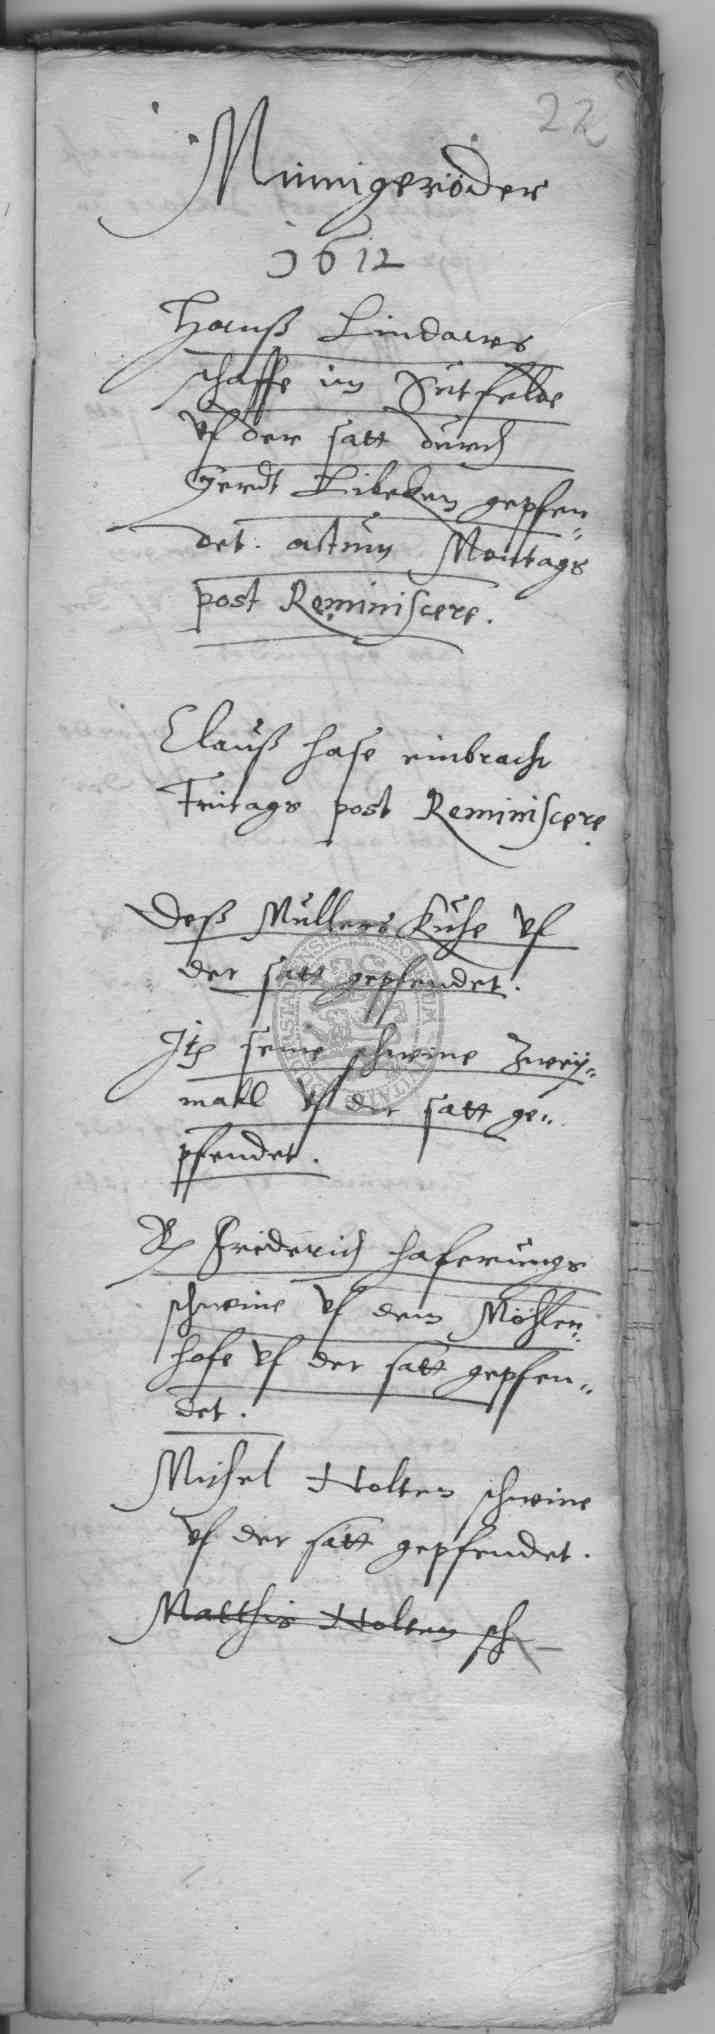 22
Minnigeröder
1612
Hanß Lindawes
schaffe im Sütfelde
vf der satt durch
Gerdt Libeken gepfen„
det. actum Montags
post Reminiscere.
Clauß Hase einbracht
Freitags post Reminiscere
Deß Müllers Kuhe vf
der satt gepfendet.
Itz seine schweine Zweÿ„
mahl vf der satt ge„
pfendet.
Friderich Haferungs
schweine vf dem Möhlen„
hofe vf der satt gepfen„
det.
Michel Nolten schweine
vf der satt gepfendet.
Matthis Nolten sch